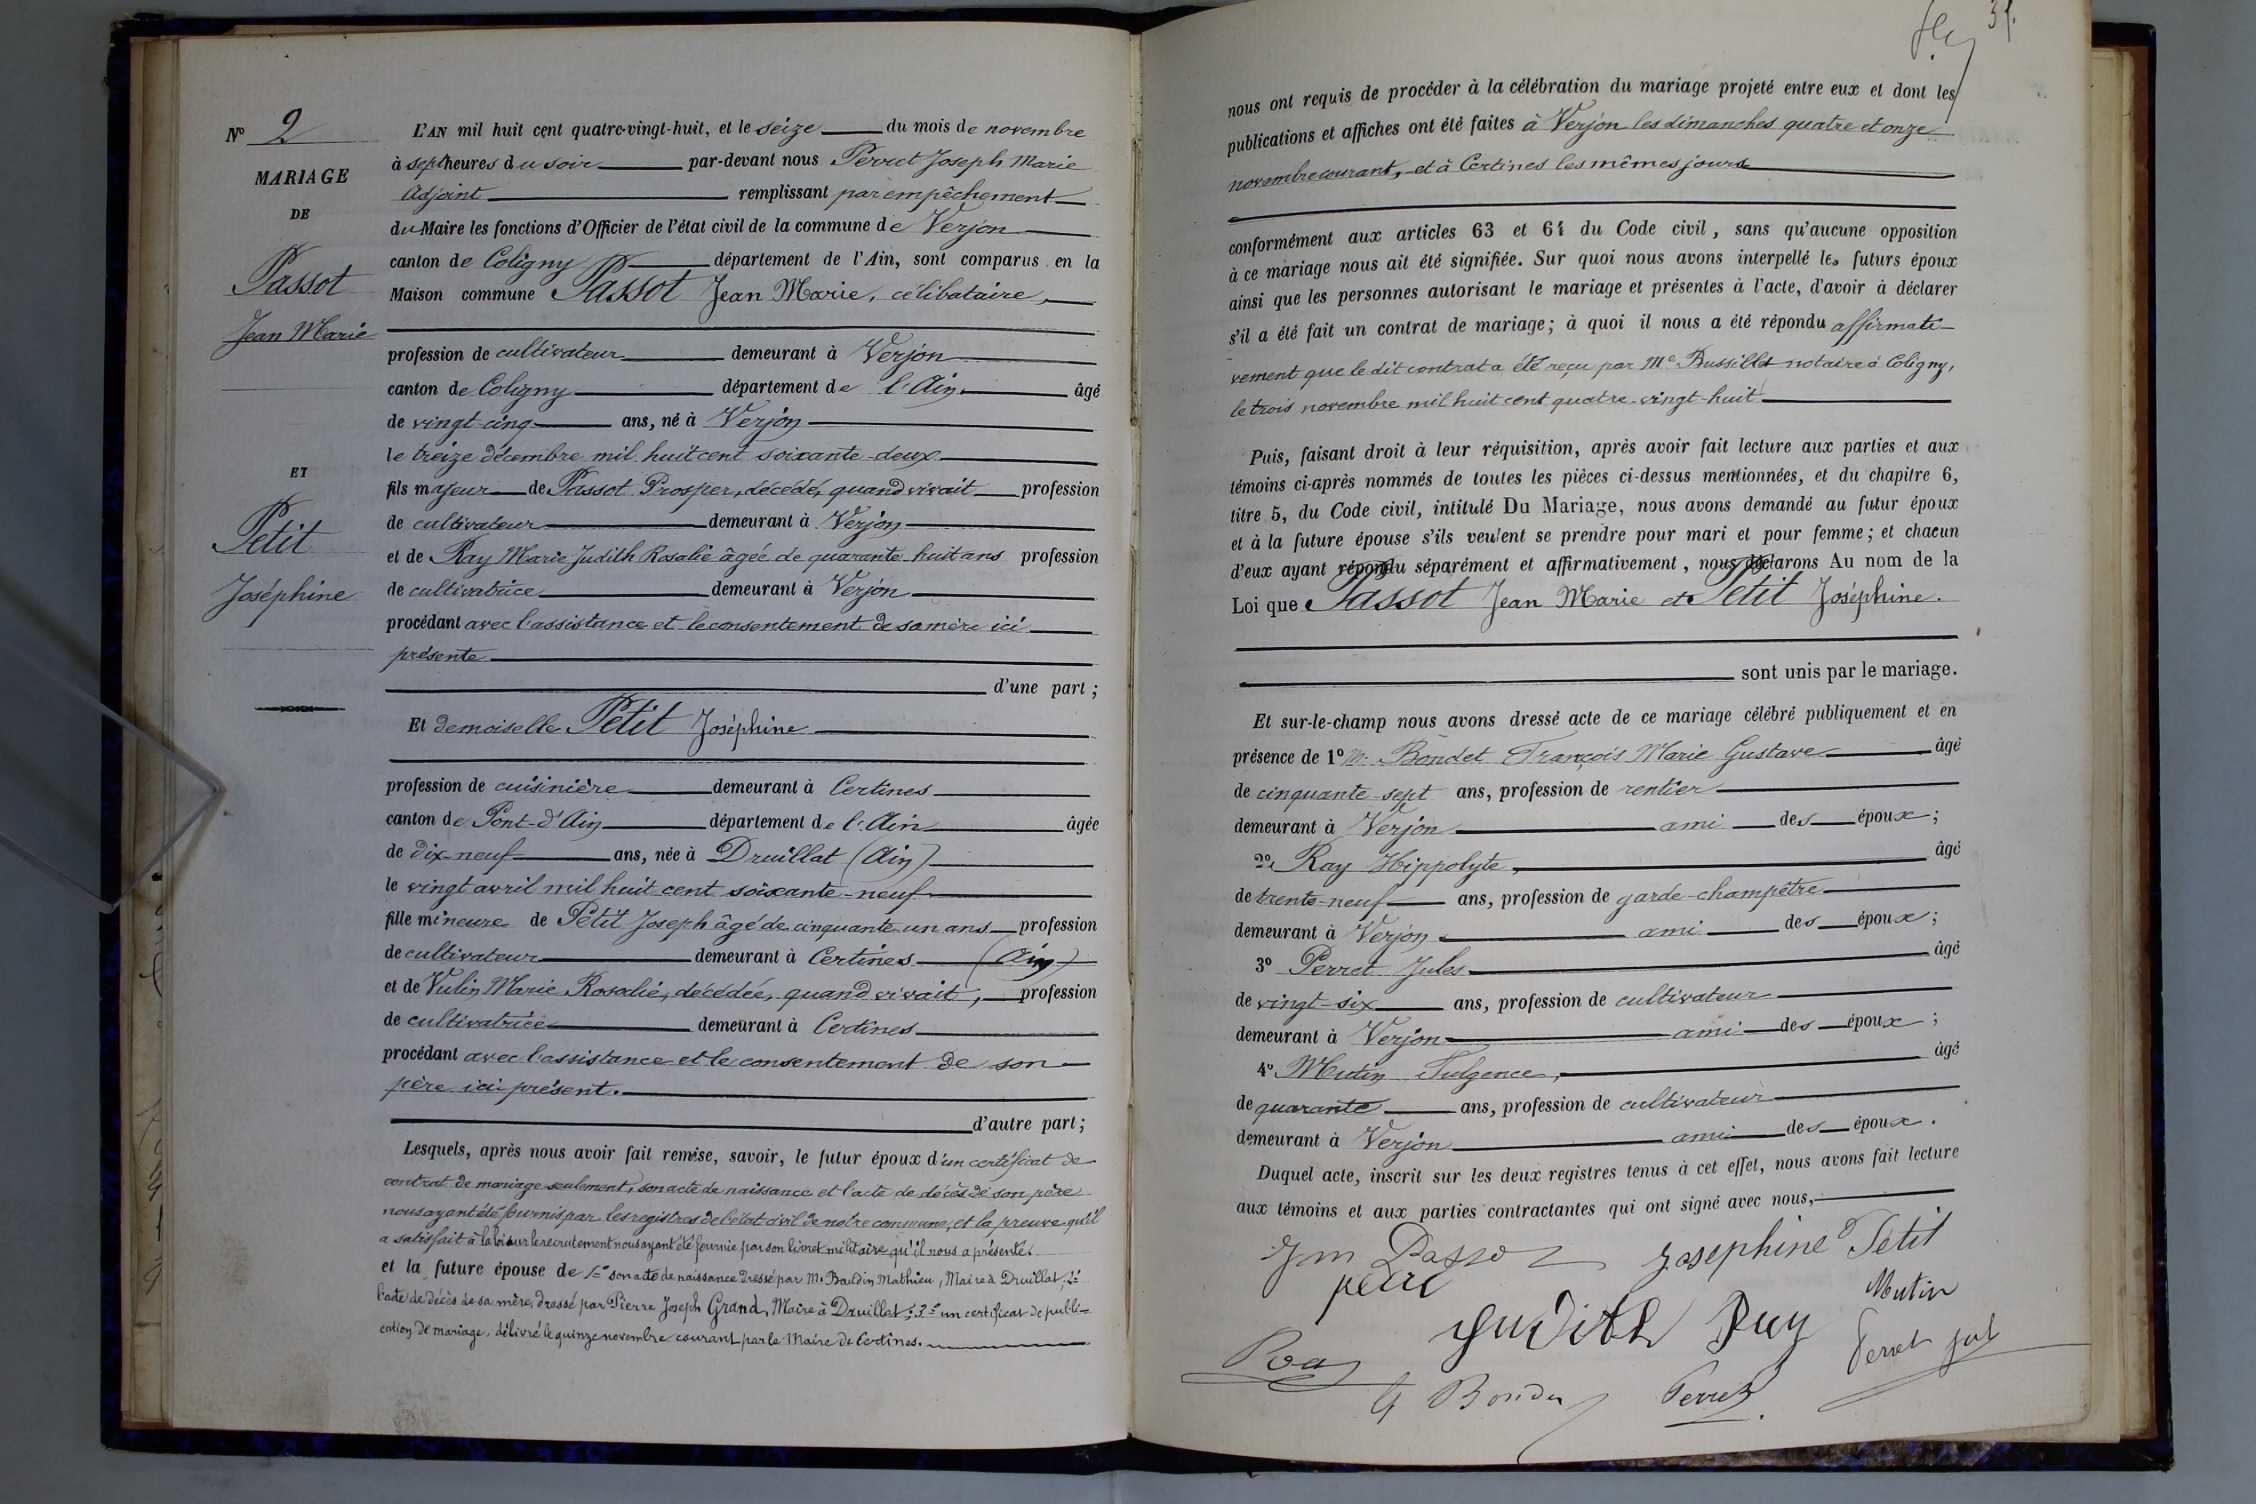 Nº 2
MARIAGE
DE
Passot
Jean Marie
ET
Petit
Joséphine
L'AN mil huit cent quatre-vingt-huit, et le seize du mois de novembre
à sept heures du soir par-devant nous Perret Joseph Marie
Adjoint remplissant par empêchement
du Maire les fonctions d'Officier de l'état civil de la commune de Verjon
canton de Coligny département de l'Ain, sont comparus en la
Maison commune Passot Jean Marie, célibataire,
profession de cultivateur demeurant à Verjon
canton de Coligny département de l'Ain âgé
de vingt-cinq ans, né à Verjon
le treize décembre mil huit cent soixante-deux
fils majeur de Passot Prosper, décédé, quand vivait profession
de cultivateur demeurant à Verjon
et de Ray Marie Judith Rosalie âgée de quarante-huit ans profession
de cultivatrice demeurant à Verjon
procédant avec l'assistance et le consentement de sa mère ici
présente
d'une part ;
Et demoiselle Petit Joséphine
profession de cuisinière demeurant à Certines
canton de Pont-d'Ain département de l'Ain âgée
de dix-neuf ans, née à Druillat (Ain)
le vingt avril mil huit cent soixante-neuf
fille mineure de Petit Joseph âgé de cinquante-un ans profession
de cultivateur demeurant à Certines (Ain)
et de Vulin Marie Rosalie, décédée, quand vivait, profession
de cultivatrice demeurant à Certines
procédant avec l'assistance et le consentement de son
père ici présent.
d'autre part ;
Lesquels, après nous avoir fait remise, savoir, le futur époux d'un certificat de
contrat de mariage seulement, son acte de naissance et l'acte de décès de son père
nous ayant été fournis par les registres de l'état civil de notre commune, et la preuve qu'il
a satisfait à la loi sur le recrutement nous ayant été fournie par son livret militaire qu'il nous a présenté.
et la future épouse de 1º son acte de naissance dressé par M. Baudin Mathieu, Maire à Druillat, 2º
l'acte de décès de sa mère, dressé par Pierre Joseph Grand, Maire à Druillat ; 3º un certificat de publi-
cation de mariage, délivré le quinze novembre courant par le Maire de Certines.
31.
nous ont requis de procéder à la célébration du mariage projeté entre eux et dont les
publications et affiches ont été faites à Verjon les dimanches quatre et onze
novembre courant, et à Certines les mêmes jours
conformément aux articles 63 et 64 du Code civil, sans qu'aucune opposition
à ce mariage nous ait été signifiée. Sur quoi nous avons interpellé les futurs époux
ainsi que les personnes autorisant le mariage et présentes à l'acte, d'avoir à déclarer
s'il a été fait un contrat de mariage ; à quoi il nous a été répondu affirmati-
vement que le dit contrat a été reçu par Me Bussillet notaire à Coligny,
le trois novembre mil huit cent quatre-vingt-huit
Puis, faisant droit à leur réquisition, après avoir fait lecture aux parties et aux
témoins ci-après nommés de toutes les pièces ci-dessus mentionnées, et du chapitre 6,
titre 5, du Code civil, intitulé Du Mariage, nous avons demandé au futur époux
et à la future épouse s'ils veulent se prendre pour mari et pour femme ; et chacun
d'eux ayant répondu séparément et affirmativement, nous déclarons Au nom de la
Loi que Passot Jean Marie et Petit Joséphine.
sont unis par le mariage.
Et sur-le-champ nous avons dressé acte de ce mariage célébré publiquement et en
présence de 1º M. Bondet François Marie Gustave âgé
de cinquante-sept ans, profession de rentier
demeurant à Verjon ami des époux ;
2º Ray Hippolyte, âgé
de trente-neuf ans, profession de garde-champêtre
demeurant à Verjon ami des époux ;
3º Perret Jules âgé
de vingt-six ans, profession de cultivateur
demeurant à Verjon ami des époux ;
4º Mutin Fulgence, âgé
de quarante ans, profession de cultivateur
demeurant à Verjon ami des époux.
Duquel acte, inscrit sur les deux registres tenus à cet effet, nous avons fait lecture
aux témoins et aux parties contractantes qui ont signé avec nous,
Jm Passot Josephine Petit
Mutin
Judith Ray
Perret Jul
Ray
G Bondet Perret